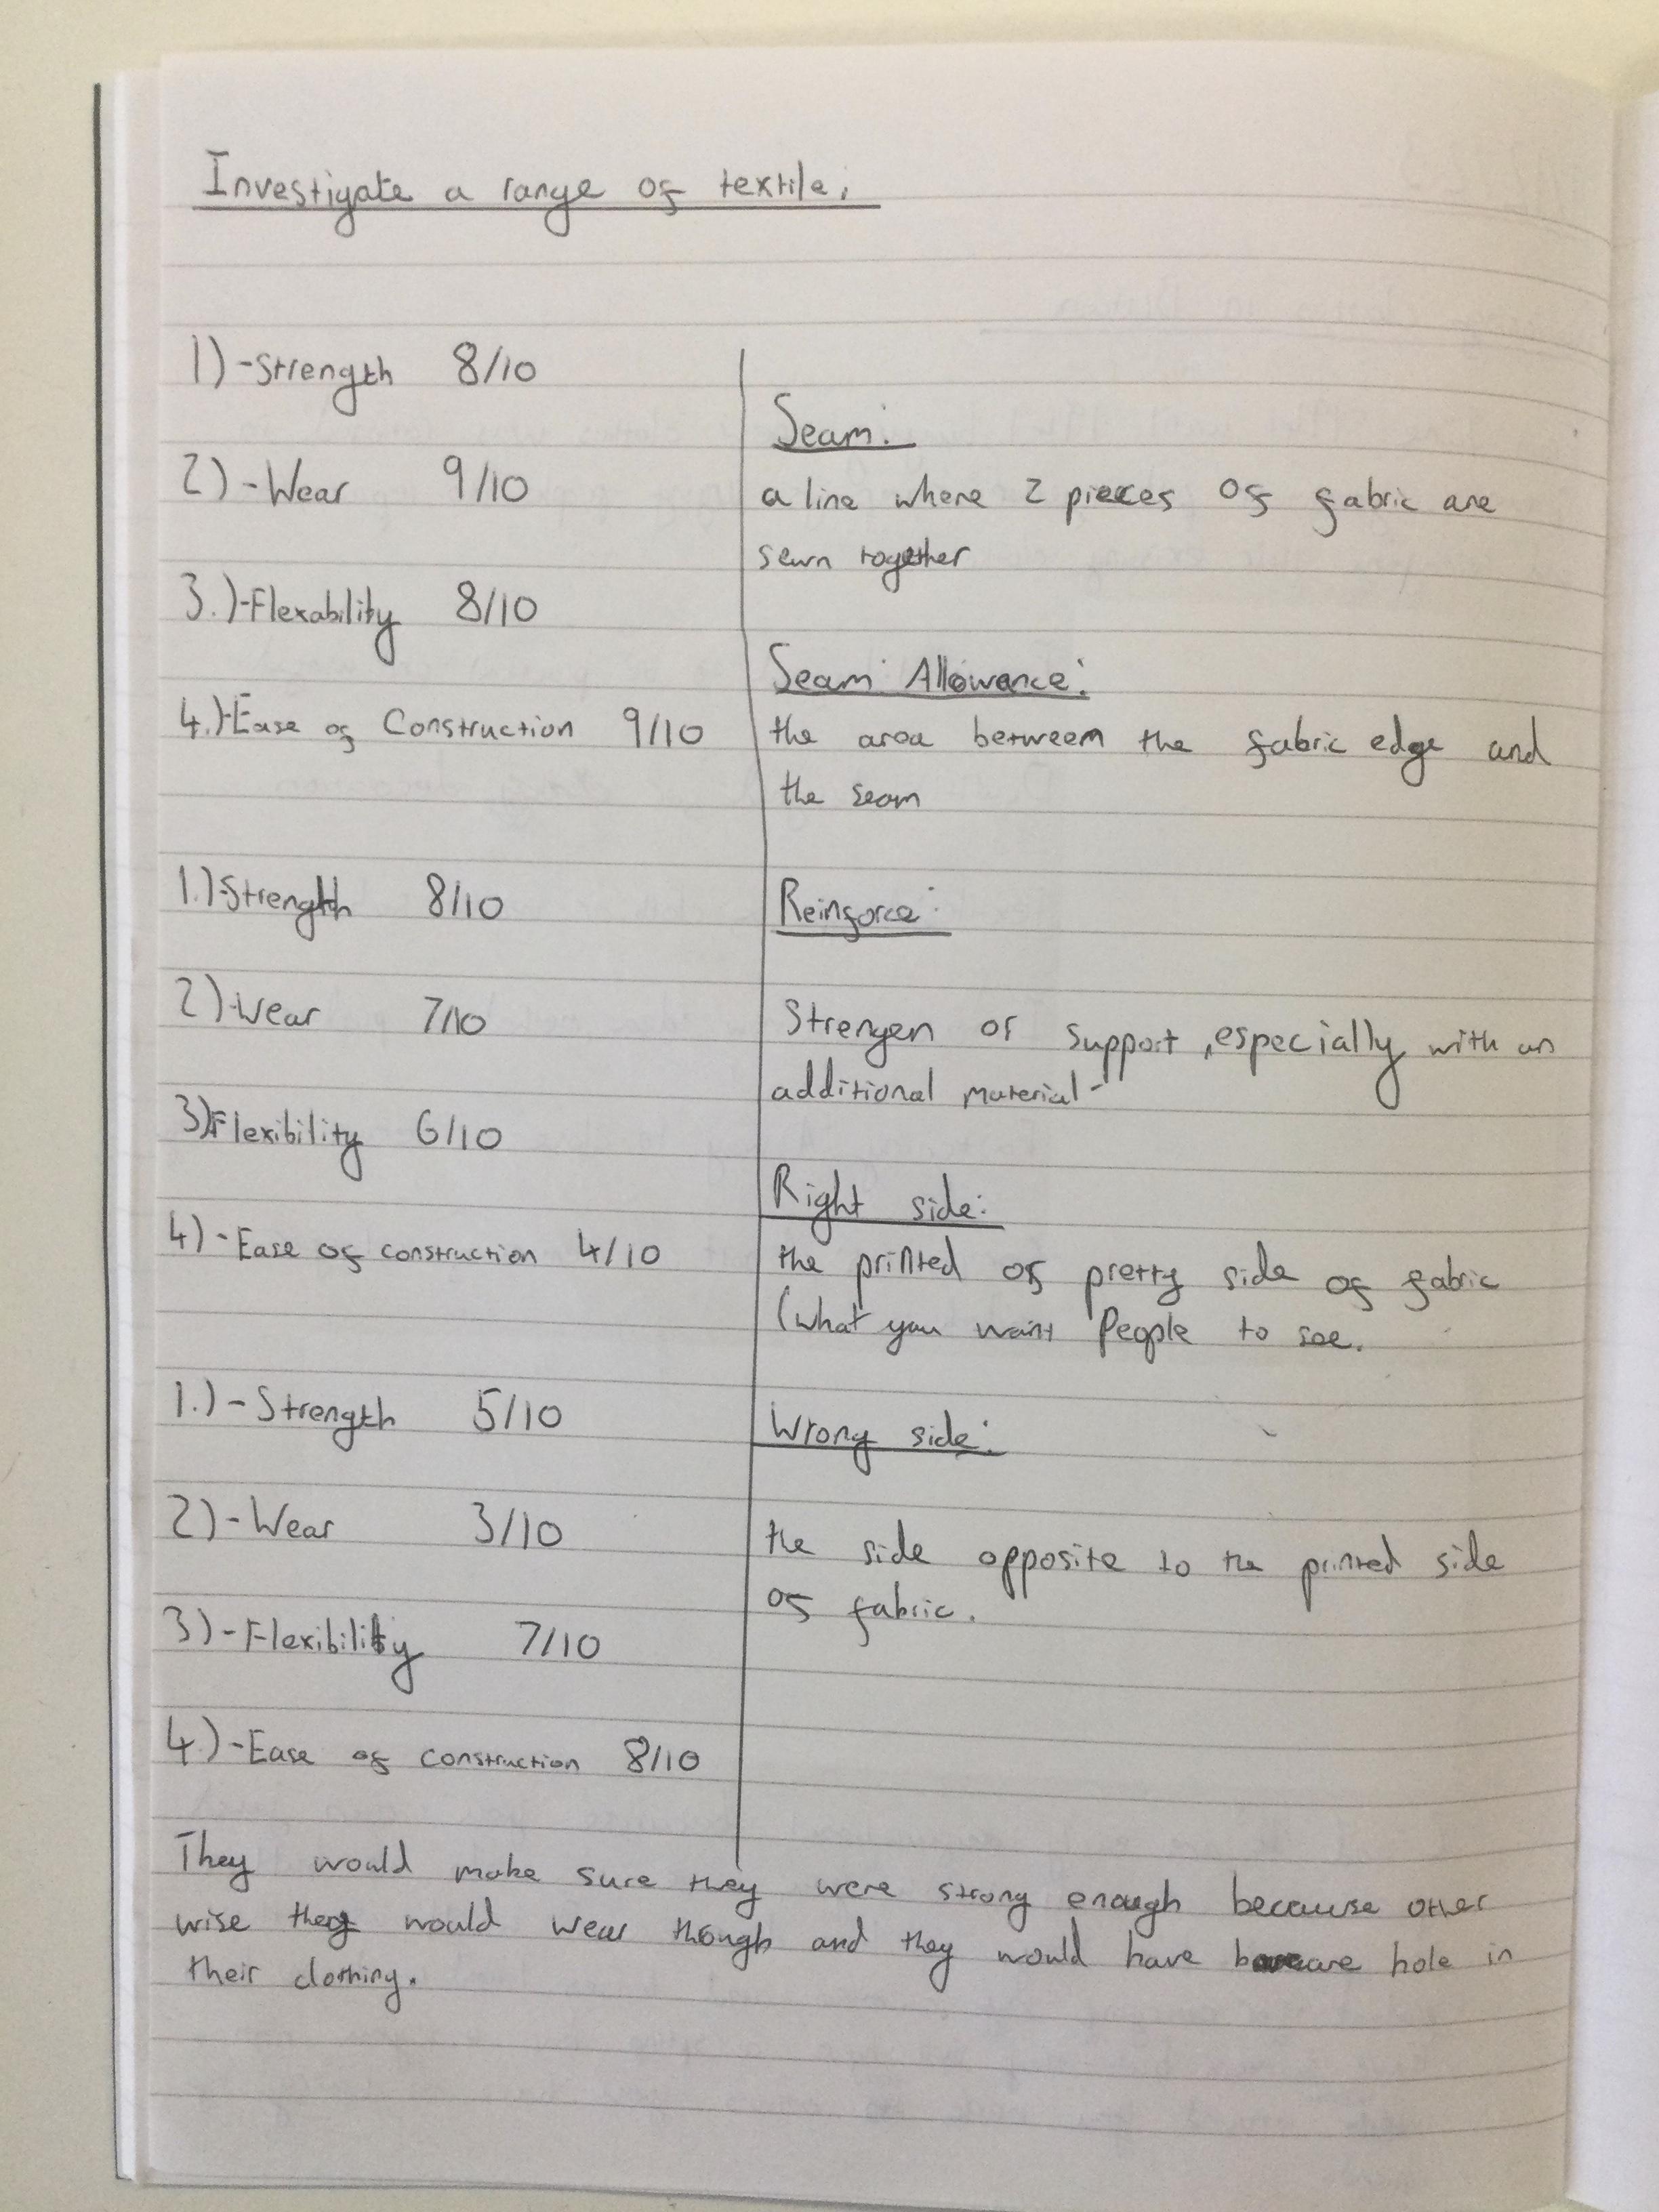 Investigate a range of textile.
1)-Strength 8/10
2)-Wear 9/10
3.)-Flexability 8/10
4.)-Ease of Construction 9/10
1.)-Strength 8/10
2)-Wear 7/10
3)Flexibility 6/10
4)-Ease of construction 4/10
1.)-Strength 5/10
2)-Wear 3/10
3)-Flexibility 7/10
4.)-Ease of construction 8/10
Seam:
a line where 2 pieces of fabric are
sewn together
Seam Allowance:
the area betweem the fabric edge and
the seam
Reinforce:
Strengen or support, especially with an
additional material-
Right side:
the printed of pretty side of fabric
(what you want People to see.
Wrong side:
the side opposite to the printed side
of fabric.
They would make sure they were strong enough because other
wise they would wear though and they would have hole in
their clothing.